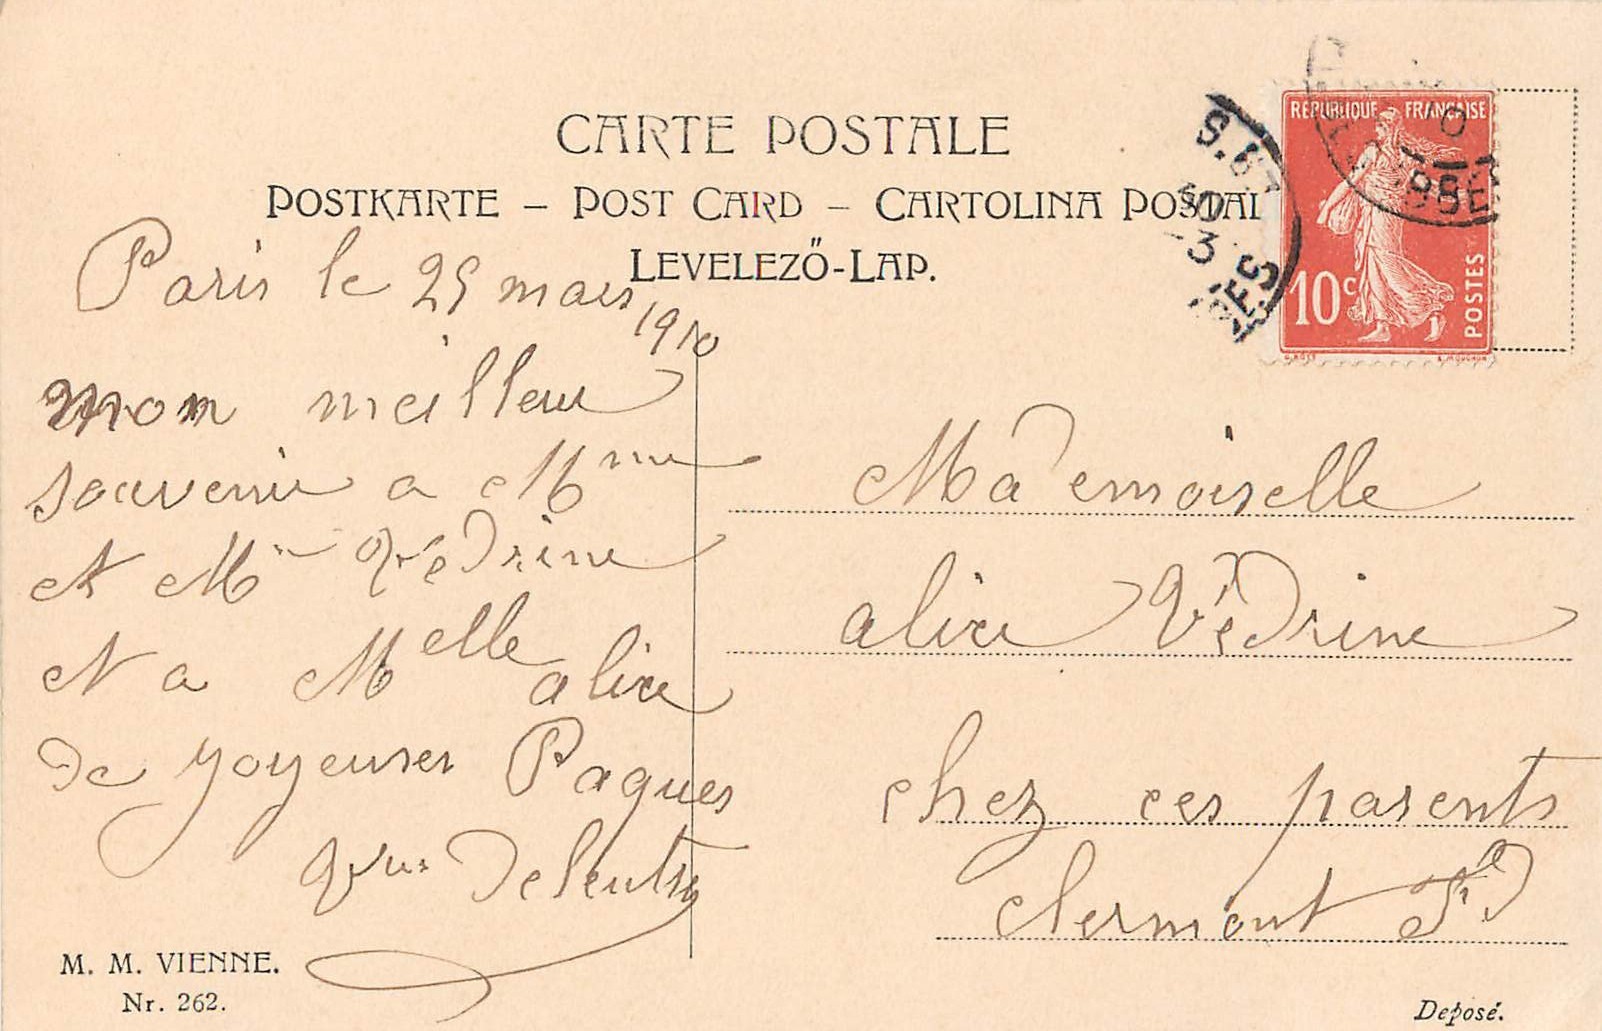 CARTE POSTALE
POSTKARTE – POST CARD – CARTOLINA POSTAL
LEVELEZŐ-LAP.
RÉPUBLIQUE FRANÇAISE
10c
POSTES
Paris le 25 mars
1910
mon meilleur
souvenir a Mme
et Mr Védrine
et a Melle alice
de joyeuses Paques
Vve
Mademoiselle
alice Védrine
chez ces parents
clermont Fd
M. M. VIENNE.
Nr. 262.
Deposé.